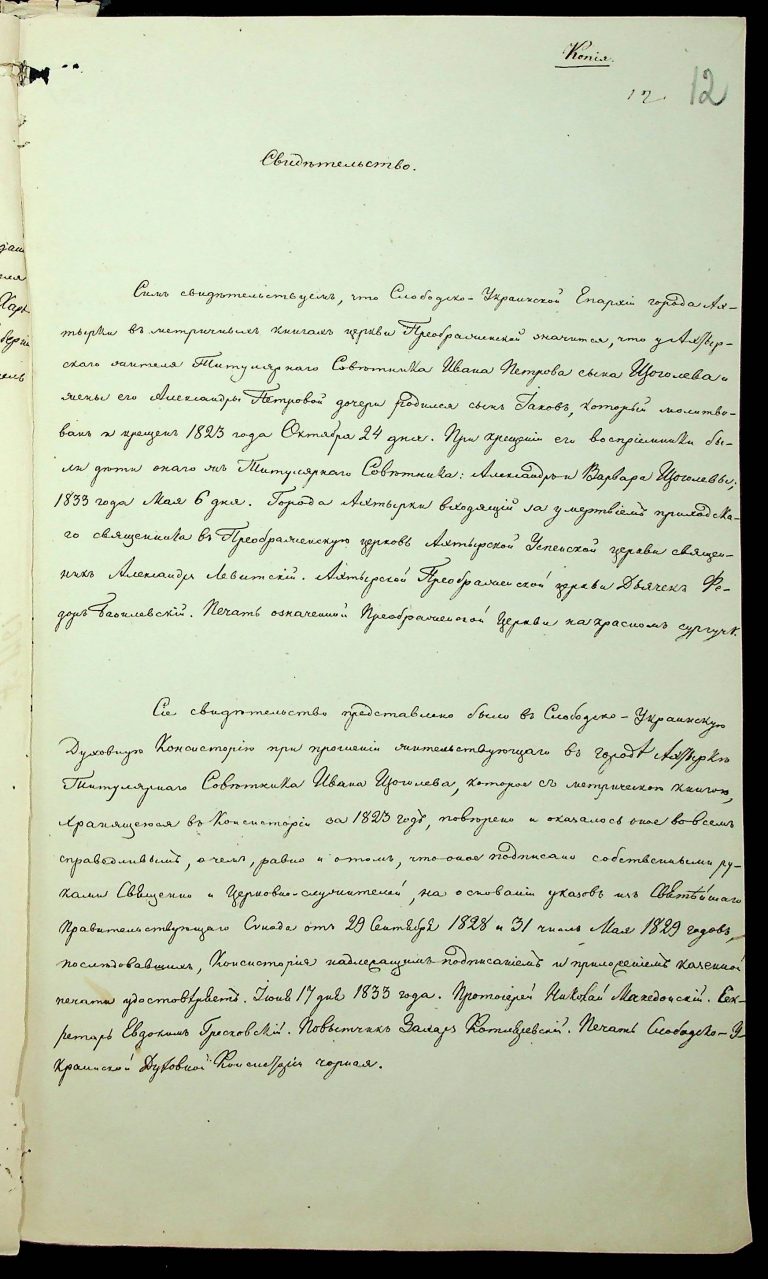 Копія.
12. 12
Свидѣтельство.
Симъ свидѣтельствуемъ, что Слободско-Украинской Епархіи города Ах-
тырки въ метричныхъ книгахъ церкви Преображенской значится, что у Ахтыр-
скаго жителя Титулярнаго Совѣтника Ивана Петрова сына Щоголева и
жены его Александры Петровой дочери родился сынъ Іаковъ, который молитво-
ванъ и крещенъ 1823 года Октября 24 дня. При крещеніи его воспріемники бы-
ли дѣти онаго жъ Титулярнаго Совѣтника: Александръ и Варвара Щоголевы;
1833 года Мая 6 дня. Города Ахтырки входящій за умертвіемъ приходска-
го священника въ Преображенскую церковь Ахтырской Успенской церкви священ-
никъ Александръ Левитскій. Ахтырской Преображенской церкви Дьячекъ Фе-
доръ Базилевскій. Печать означенной Преображенской Церкви на красномъ сургучѣ.
Сіе свидѣтельство представлено было въ Слободско-Украинскую
Духовную Консисторію при прошеніи жительствующаго въ городѣ Ахтыркѣ
Титулярнаго Совѣтника Ивана Щоголева, которое съ метрическою книгою,
хранящеюся въ Консисторіи за 1823 годъ, повѣрено и оказалось оное во всемъ
справедливымъ, о чемъ, равно и о томъ, что оное подписано собственными ру-
ками Священно и Церковно-служителей, на основаніи указовъ изъ Святѣйшаго
Правительствующаго Синода отъ 29 Сентября 1828 и 31 чиселъ Мая 1829 годовъ,
послѣдовавшихъ, Консисторія надлежащимъ подписаніемъ и приложеніемъ казенной
печати удостовѣряетъ. Іюня 17 дня 1833 года. Протоіерей Николай Македонскій. Сек-
ретарь Евдокимъ Гресковскій. Повытчикъ Захаръ Печать Слободско-У-
краинской Духовной Консисторіи чорная.